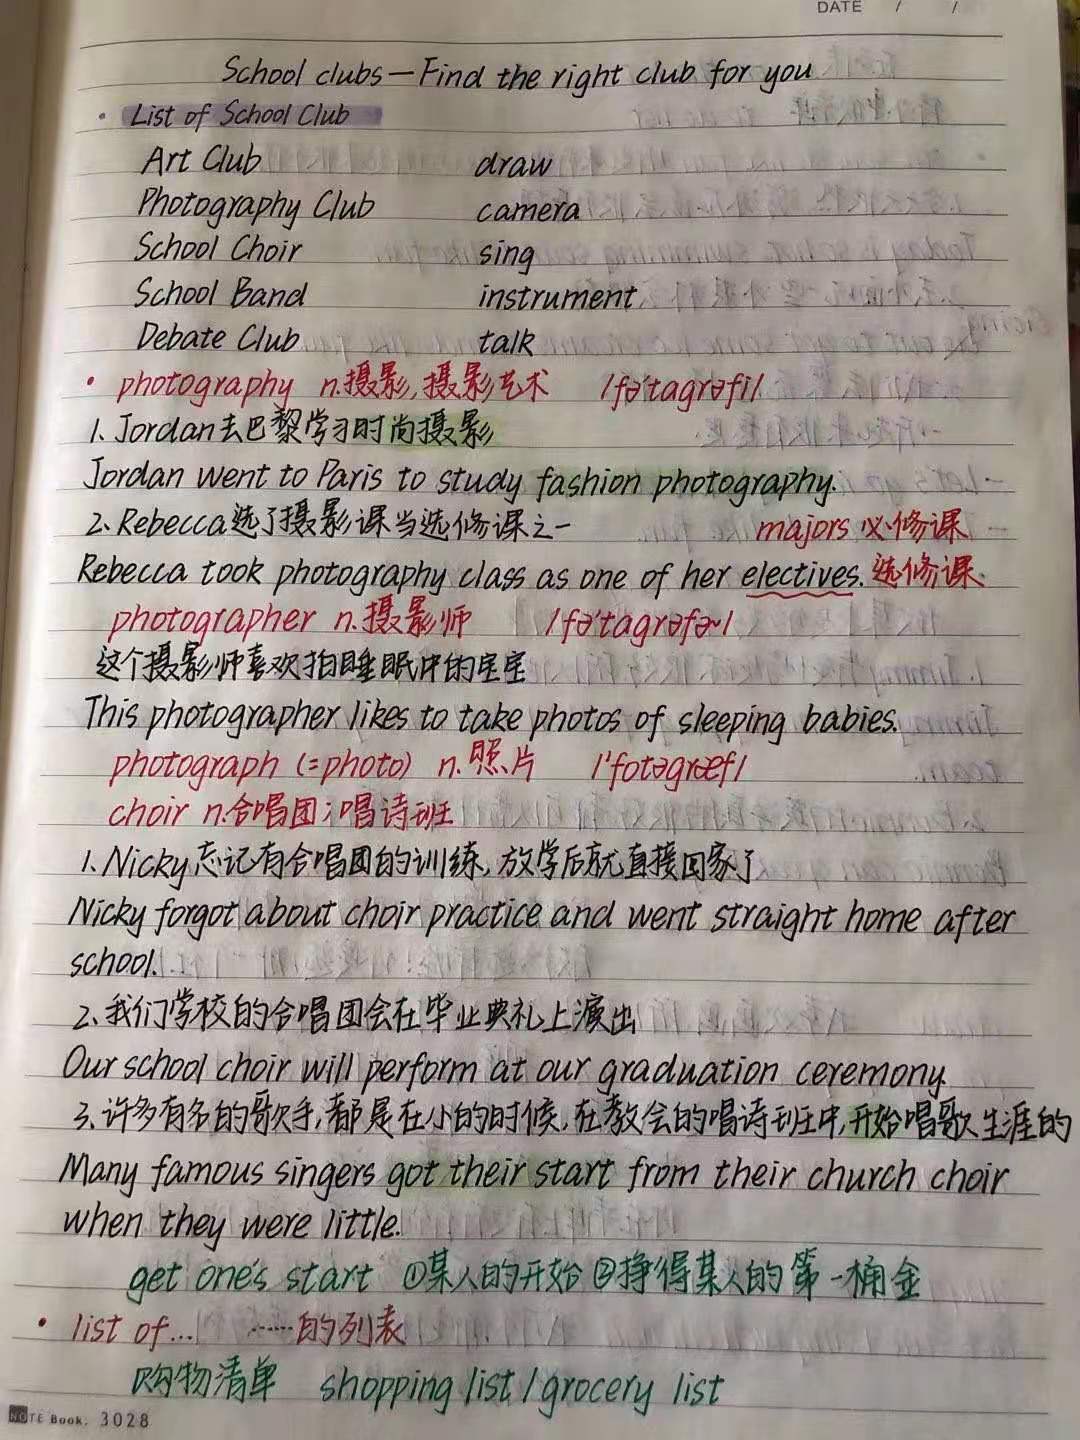 DATE / /
School clubs—Find the right club for you
• List of School Club
Art Club draw
Photography Club camera
School Choir sing
School Band instrument
Debate Club talk
• photography n.摄影,摄影艺术 /fə'tagrəfi/
1、Jordan去巴黎学习时尚摄影
Jordan went to Paris to study fashion photography.
2、Rebecca选了摄影课当选修课之一 majors 必修课
Rebecca took photography class as one of her electives. 选修课
photographer n.摄影师 /fə'tagrəfɚ/
这个摄影师喜欢拍睡眠中的宝宝
This photographer likes to take photos of sleeping babies.
photograph (=photo) n.照片 /'fotəgræf/
choir n.合唱团;唱诗班
1、Nicky忘记有合唱团的训练,放学后就直接回家了
Nicky forgot about choir practice and went straight home after
school.
2、我们学校的合唱团会在毕业典礼上演出
Our school choir will perform at our graduation ceremony.
3、许多有名的歌手,都是在小的时候,在教会的唱诗班中,开始唱歌生涯的
Many famous singers got their start from their church choir
when they were little.
get one's start ①某人的开始 ②挣得某人的第一桶金
• list of... ……的列表
购物清单 shopping list / grocery list
NOTE Book. 3028